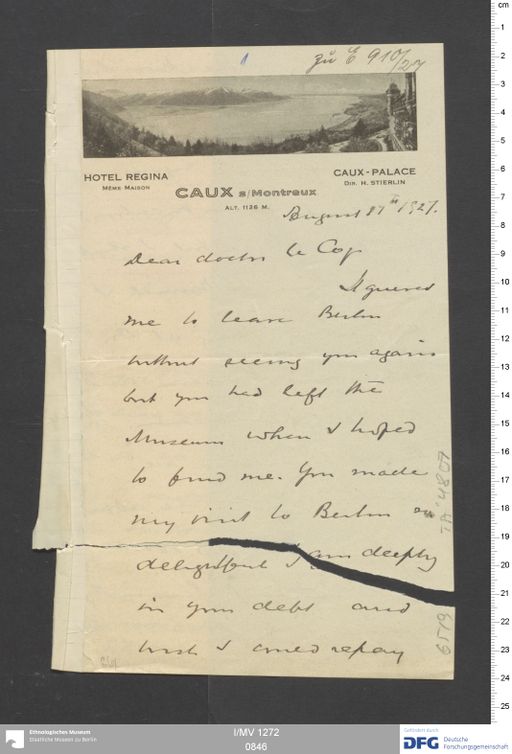 zu E 910/27
1
HOTEL REGINA
MÊME MAISON
CAUX-PALACE
DIR. H. STIERLIN
CAUX s/Montreux
ALT. 1126 M.
August 1927.
Dear doctor le Coq
It grieved
me to leave Berlin
without seeing you again
but you had left the
Museum when I hoped
to find me. You made
my visit to Berlin so
delightful I am deeply
in your debt and
wish I could repay
TA 4807
6519
Ethnologisches Museum
Staatliche Museen zu Berlin
I/MV 1272
0846
Gefördert durch
DFG Deutsche
Forschungsgemeinschaft
cm
1
2
3
4
5
6
7
8
9
10
11
12
13
14
15
16
17
18
19
20
21
22
23
24
25